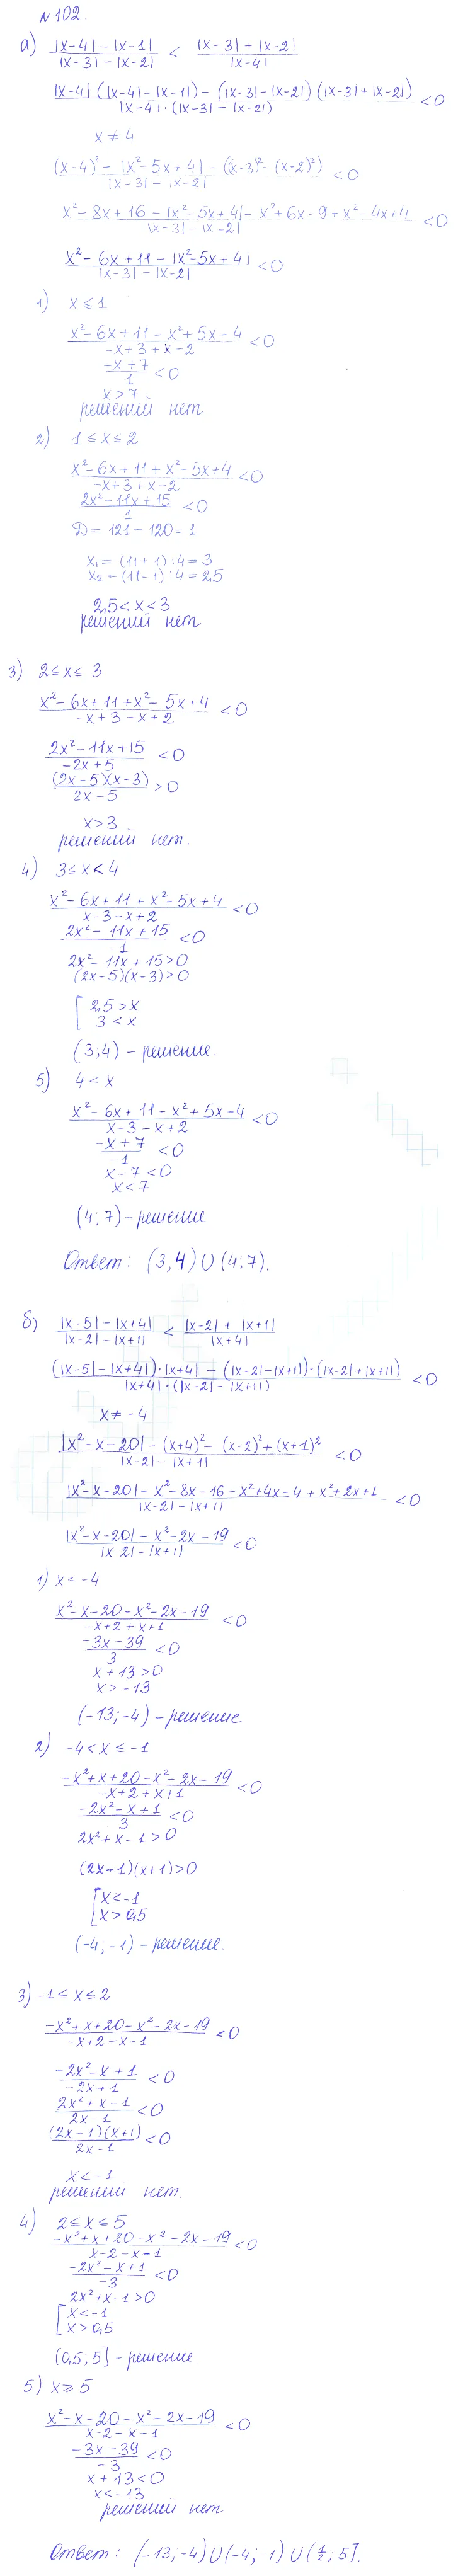 №102.
а) (|x-4| - |x-1|)/(|x-3| - |x-2|) < (|x-3| + |x-2|)/|x-4|
(|x-4|(|x-4| - |x-1|) - (|x-3| - |x-2|)·(|x-3| + |x-2|))/(|x-4|·(|x-3| - |x-2|)) < 0
x ≠ 4
((x-4)² - |x² - 5x + 4| - ((x-3)² - (x-2)²))/(|x-3| - |x-2|) < 0
(x² - 8x + 16 - |x² - 5x + 4| - x² + 6x - 9 + x² - 4x + 4)/(|x-3| - |x-2|) < 0
(x² - 6x + 11 - |x² - 5x + 4|)/(|x-3| - |x-2|) < 0
1) x ≤ 1
(x² - 6x + 11 - x² + 5x - 4)/(-x + 3 + x - 2) < 0
(-x + 7)/1 < 0
x > 7.
решений нет
2) 1 ≤ x ≤ 2
(x² - 6x + 11 + x² - 5x + 4)/(-x + 3 + x - 2) < 0
(2x² - 11x + 15)/1 < 0
D = 121 - 120 = 1
x₁ = (11 + 1) : 4 = 3
x₂ = (11 - 1) : 4 = 2,5
2,5 < x < 3
решений нет
3) 2 ≤ x ≤ 3
(x² - 6x + 11 + x² - 5x + 4)/(-x + 3 - x + 2) < 0
(2x² - 11x + 15)/(-2x + 5) < 0
((2x - 5)(x - 3))/(2x - 5) > 0
x > 3
решений нет.
4) 3 ≤ x < 4
(x² - 6x + 11 + x² - 5x + 4)/(x - 3 - x + 2) < 0
(2x² - 11x + 15)/(-1) < 0
2x² - 11x + 15 > 0
(2x - 5)(x - 3) > 0
[ 2,5 > x
3 < x
(3; 4) - решение.
5) 4 < x
(x² - 6x + 11 - x² + 5x - 4)/(x - 3 - x + 2) < 0
(-x + 7)/(-1) < 0
x - 7 < 0
x < 7
(4; 7) - решение
Ответ: (3, 4) ∪ (4; 7).
б) (|x-5| - |x+4|)/(|x-2| - |x+1|) < (|x-2| + |x+1|)/|x+4|
((|x-5| - |x+4|)·|x+4| - (|x-2| - |x+1|)·(|x-2| + |x+1|))/(|x+4|·(|x-2| - |x+1|)) < 0
x ≠ -4
(|x² - x - 20| - (x+4)² - (x-2)² + (x+1)²)/(|x-2| - |x+1|) < 0
(|x² - x - 20| - x² - 8x - 16 - x² + 4x - 4 + x² + 2x + 1)/(|x-2| - |x+1|) < 0
(|x² - x - 20| - x² - 2x - 19)/(|x-2| - |x+1|) < 0
1) x < -4
(x² - x - 20 - x² - 2x - 19)/(-x + 2 + x + 1) < 0
(-3x - 39)/3 < 0
x + 13 > 0
x > -13
(-13; -4) - решение
2) -4 < x ≤ -1
(-x² + x + 20 - x² - 2x - 19)/(-x + 2 + x + 1) < 0
(-2x² - x + 1)/3 < 0
2x² + x - 1 > 0
(2x - 1)(x + 1) > 0
[ x < -1
x > 0,5
(-4; -1) - решение.
3) -1 ≤ x ≤ 2
(-x² + x + 20 - x² - 2x - 19)/(-x + 2 - x - 1) < 0
(-2x² - x + 1)/(-2x + 1) < 0
(2x² + x - 1)/(2x - 1) < 0
((2x - 1)(x + 1))/(2x - 1) < 0
x < -1
решений нет.
4) 2 ≤ x ≤ 5
(-x² + x + 20 - x² - 2x - 19)/(x - 2 - x - 1) < 0
(-2x² - x + 1)/(-3) < 0
2x² + x - 1 > 0
[ x < -1
x > 0,5
(0,5; 5] - решение.
5) x ≥ 5
(x² - x - 20 - x² - 2x - 19)/(x - 2 - x - 1) < 0
(-3x - 39)/(-3) < 0
x + 13 < 0
x < -13
решений нет
Ответ: (-13; -4) ∪ (-4; -1) ∪ (1/2; 5].